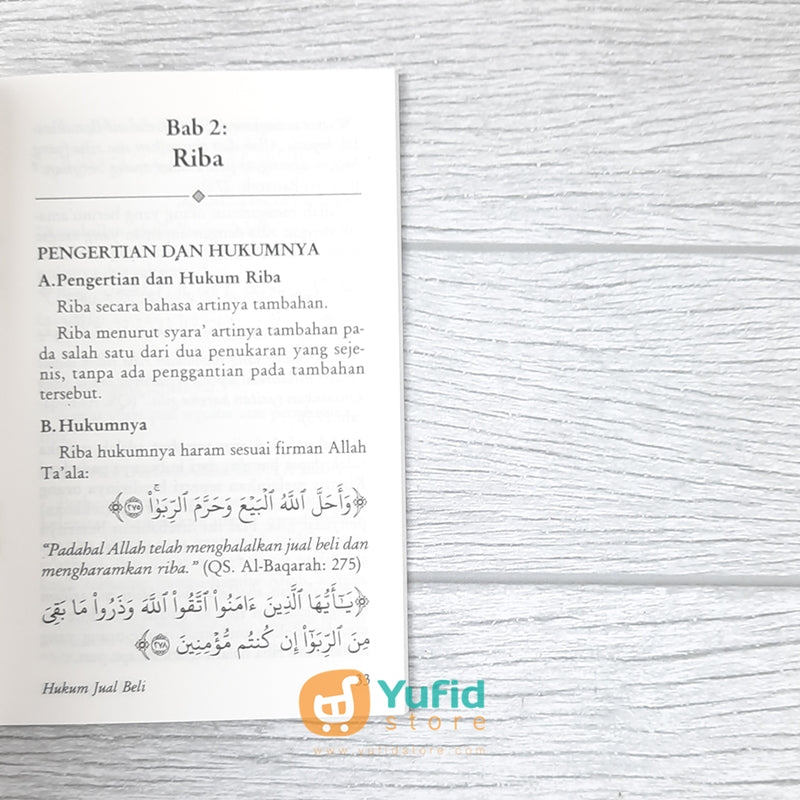 Bab 2:
Riba
PENGERTIAN DAN HUKUMNYA
A.Pengertian dan Hukum Riba
Riba secara bahasa artinya tambahan.
Riba menurut syara’ artinya tambahan pa-
da salah satu dari dua penukaran yang seje-
nis, tanpa ada penggantian pada tambahan
tersebut.
B.Hukumnya
Riba hukumnya haram sesuai firman Allah
Ta’ala:
﴿وَأَحَلَّ ٱللَّهُ ٱلْبَيْعَ وَحَرَّمَ ٱلرِّبَوٰا۟ ۚ ٢٧٥﴾
“Padahal Allah telah menghalalkan jual beli dan
mengharamkan riba.” (QS. Al-Baqarah: 275)
﴿يَـٰٓأَيُّهَا ٱلَّذِينَ ءَامَنُوا۟ ٱتَّقُوا۟ ٱللَّهَ وَذَرُوا۟ مَا بَقِىَ
مِنَ ٱلرِّبَوٰٓا۟ إِن كُنتُم مُّؤْمِنِينَ ٢٧٨﴾
Hukum Jual Beli
33
Yufid
store
www.yufidstore.com